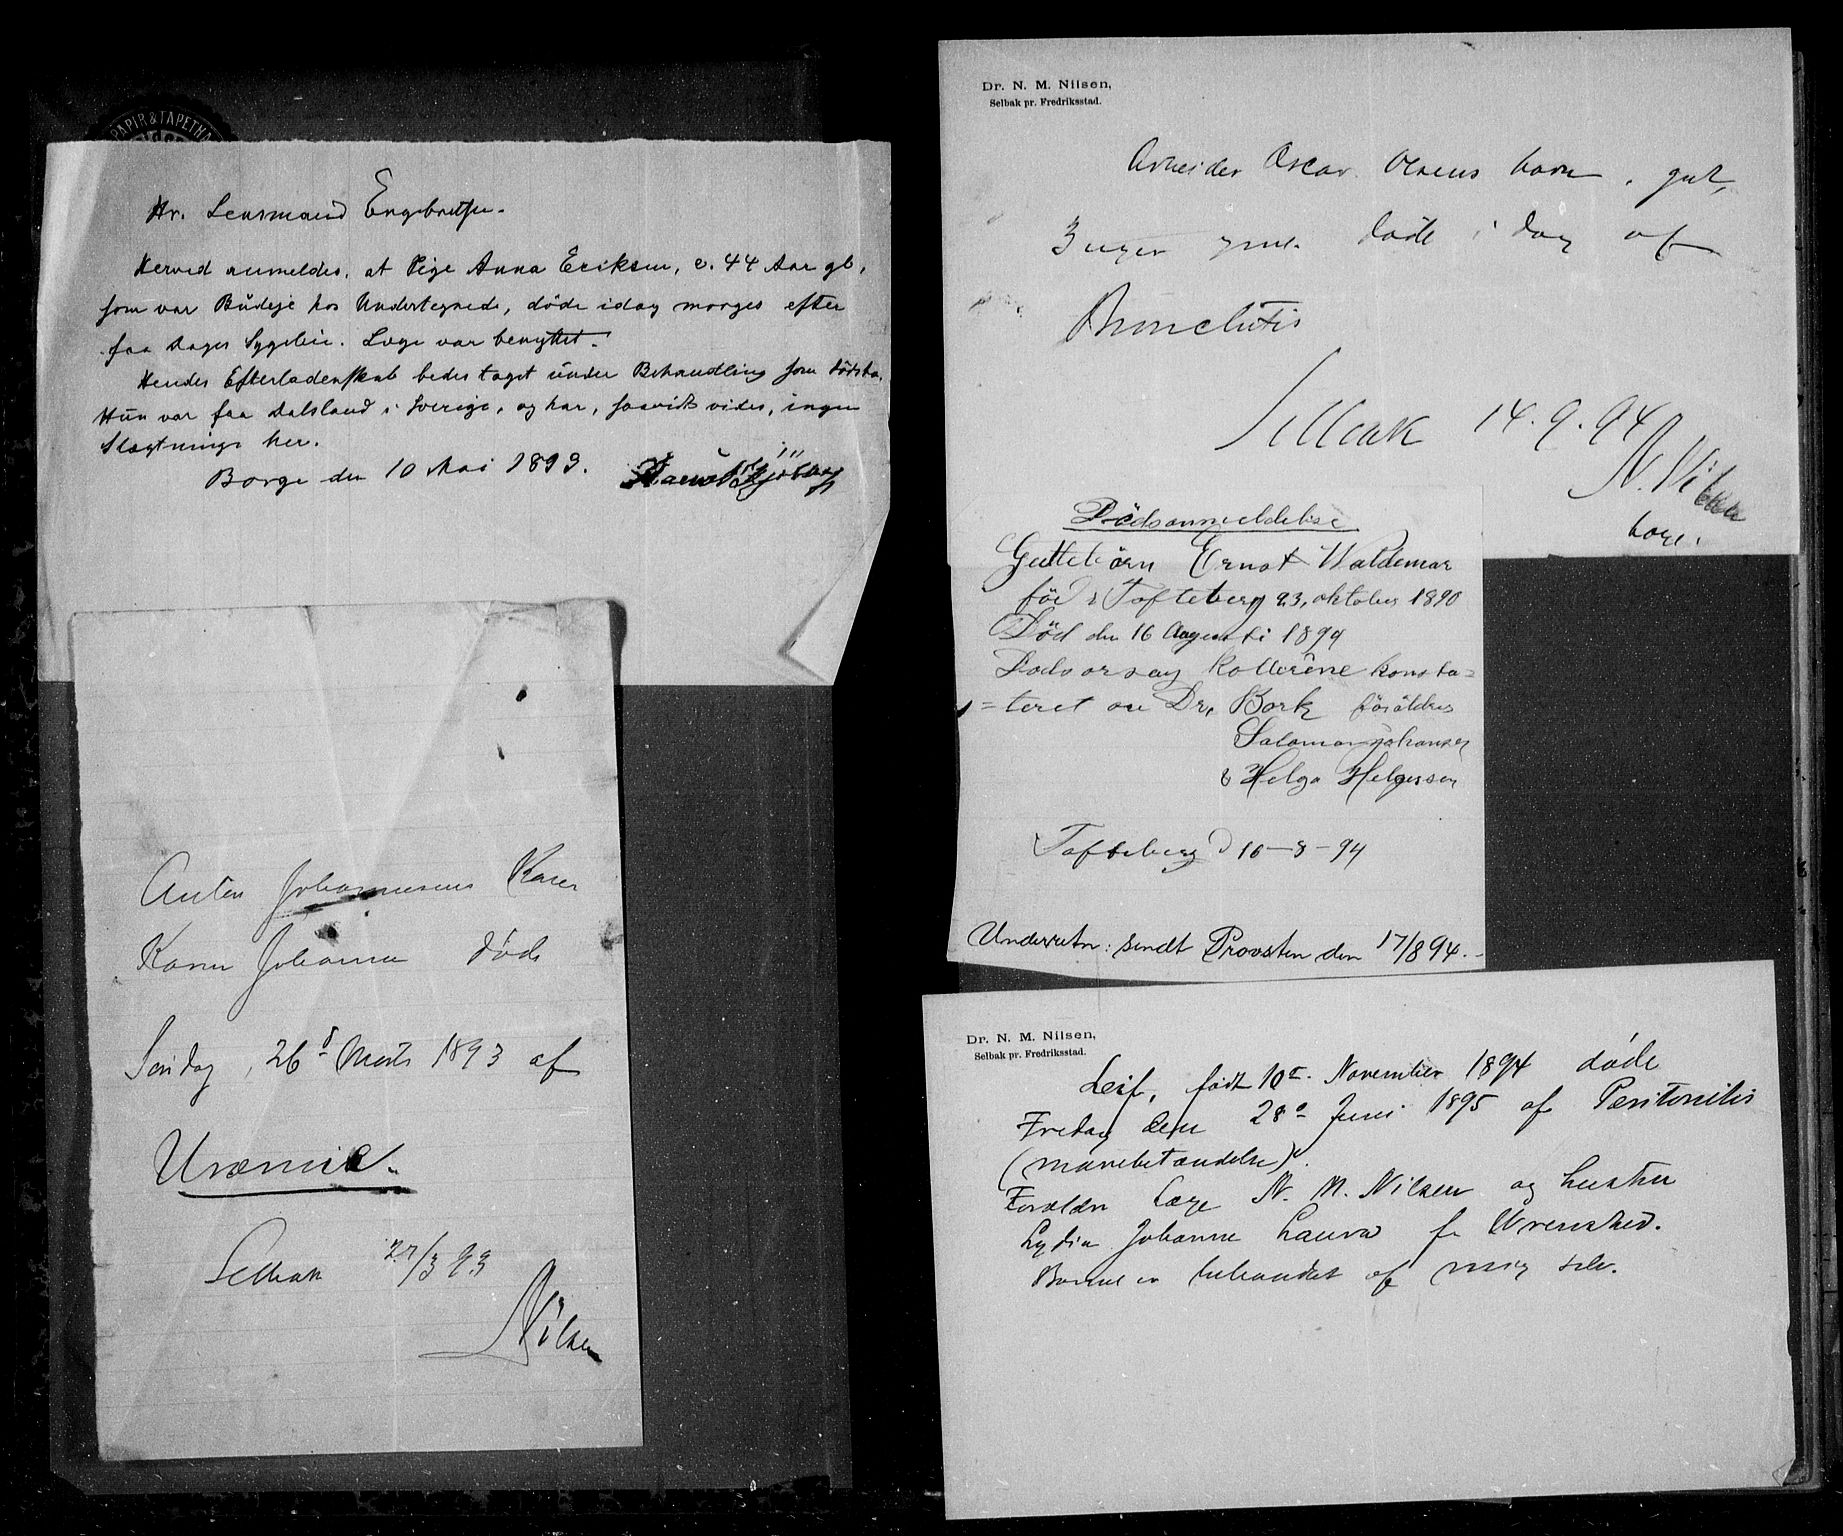 PAPIR & TAPETHA
Hr. Lensmand Engebretsen.
Herved anmeldes, at Pige Anna Eriksen, c. 44 Aar gl,
som var Budeje hos Undertegnede, døde idag morges efter
faa Dages Sygeleie. Læge var benyttet.
Hendes Efterladenskab bedes taget under Behandling som Dødsbo.
Hun var fra Dalsland i Sverige, og har, saavidt vides, ingen
Slægtninge her.
Borge den 10 Mai 1893.
Anton Johannesens Kone
Karen Johanna døde
Søndag, 26d Marts 1893 af
Uræmie.
Selbak 27/3 93
Nilsen
Dr. N. M. Nilsen,
Selbak pr. Fredriksstad.
Arbeider Oscar Olsens barn, gut,
3 uger gml. døde i dag af
Bronchitis
Selbak 14.9.94
N. Nilsen
læge.
Dødsanmeldelse
Guttebørn Ernst Waldemar
föd i Tofteberg 23, oktober 1890
Död den 16 Augusti 1894
Dødsorsag kollerine konsta=
=teret av Dr, Bork föräldrer
Salomon Johansen
& Helga Helgesen
Tofteberg d 16-8-94
Underretn: sendt Provsten den 17/8 94.
Dr. N. M. Nilsen,
Selbak pr. Fredriksstad.
Leif, født 10de November 1894 døde
Fredag den 28de Juni 1895 af Peritonitis
(mavebetændelse).
Forældre læge N. M. Nilsen og hustru
Lydia Johanne Laura f. Wrensted.
Barnet er behandlet af mig selv.